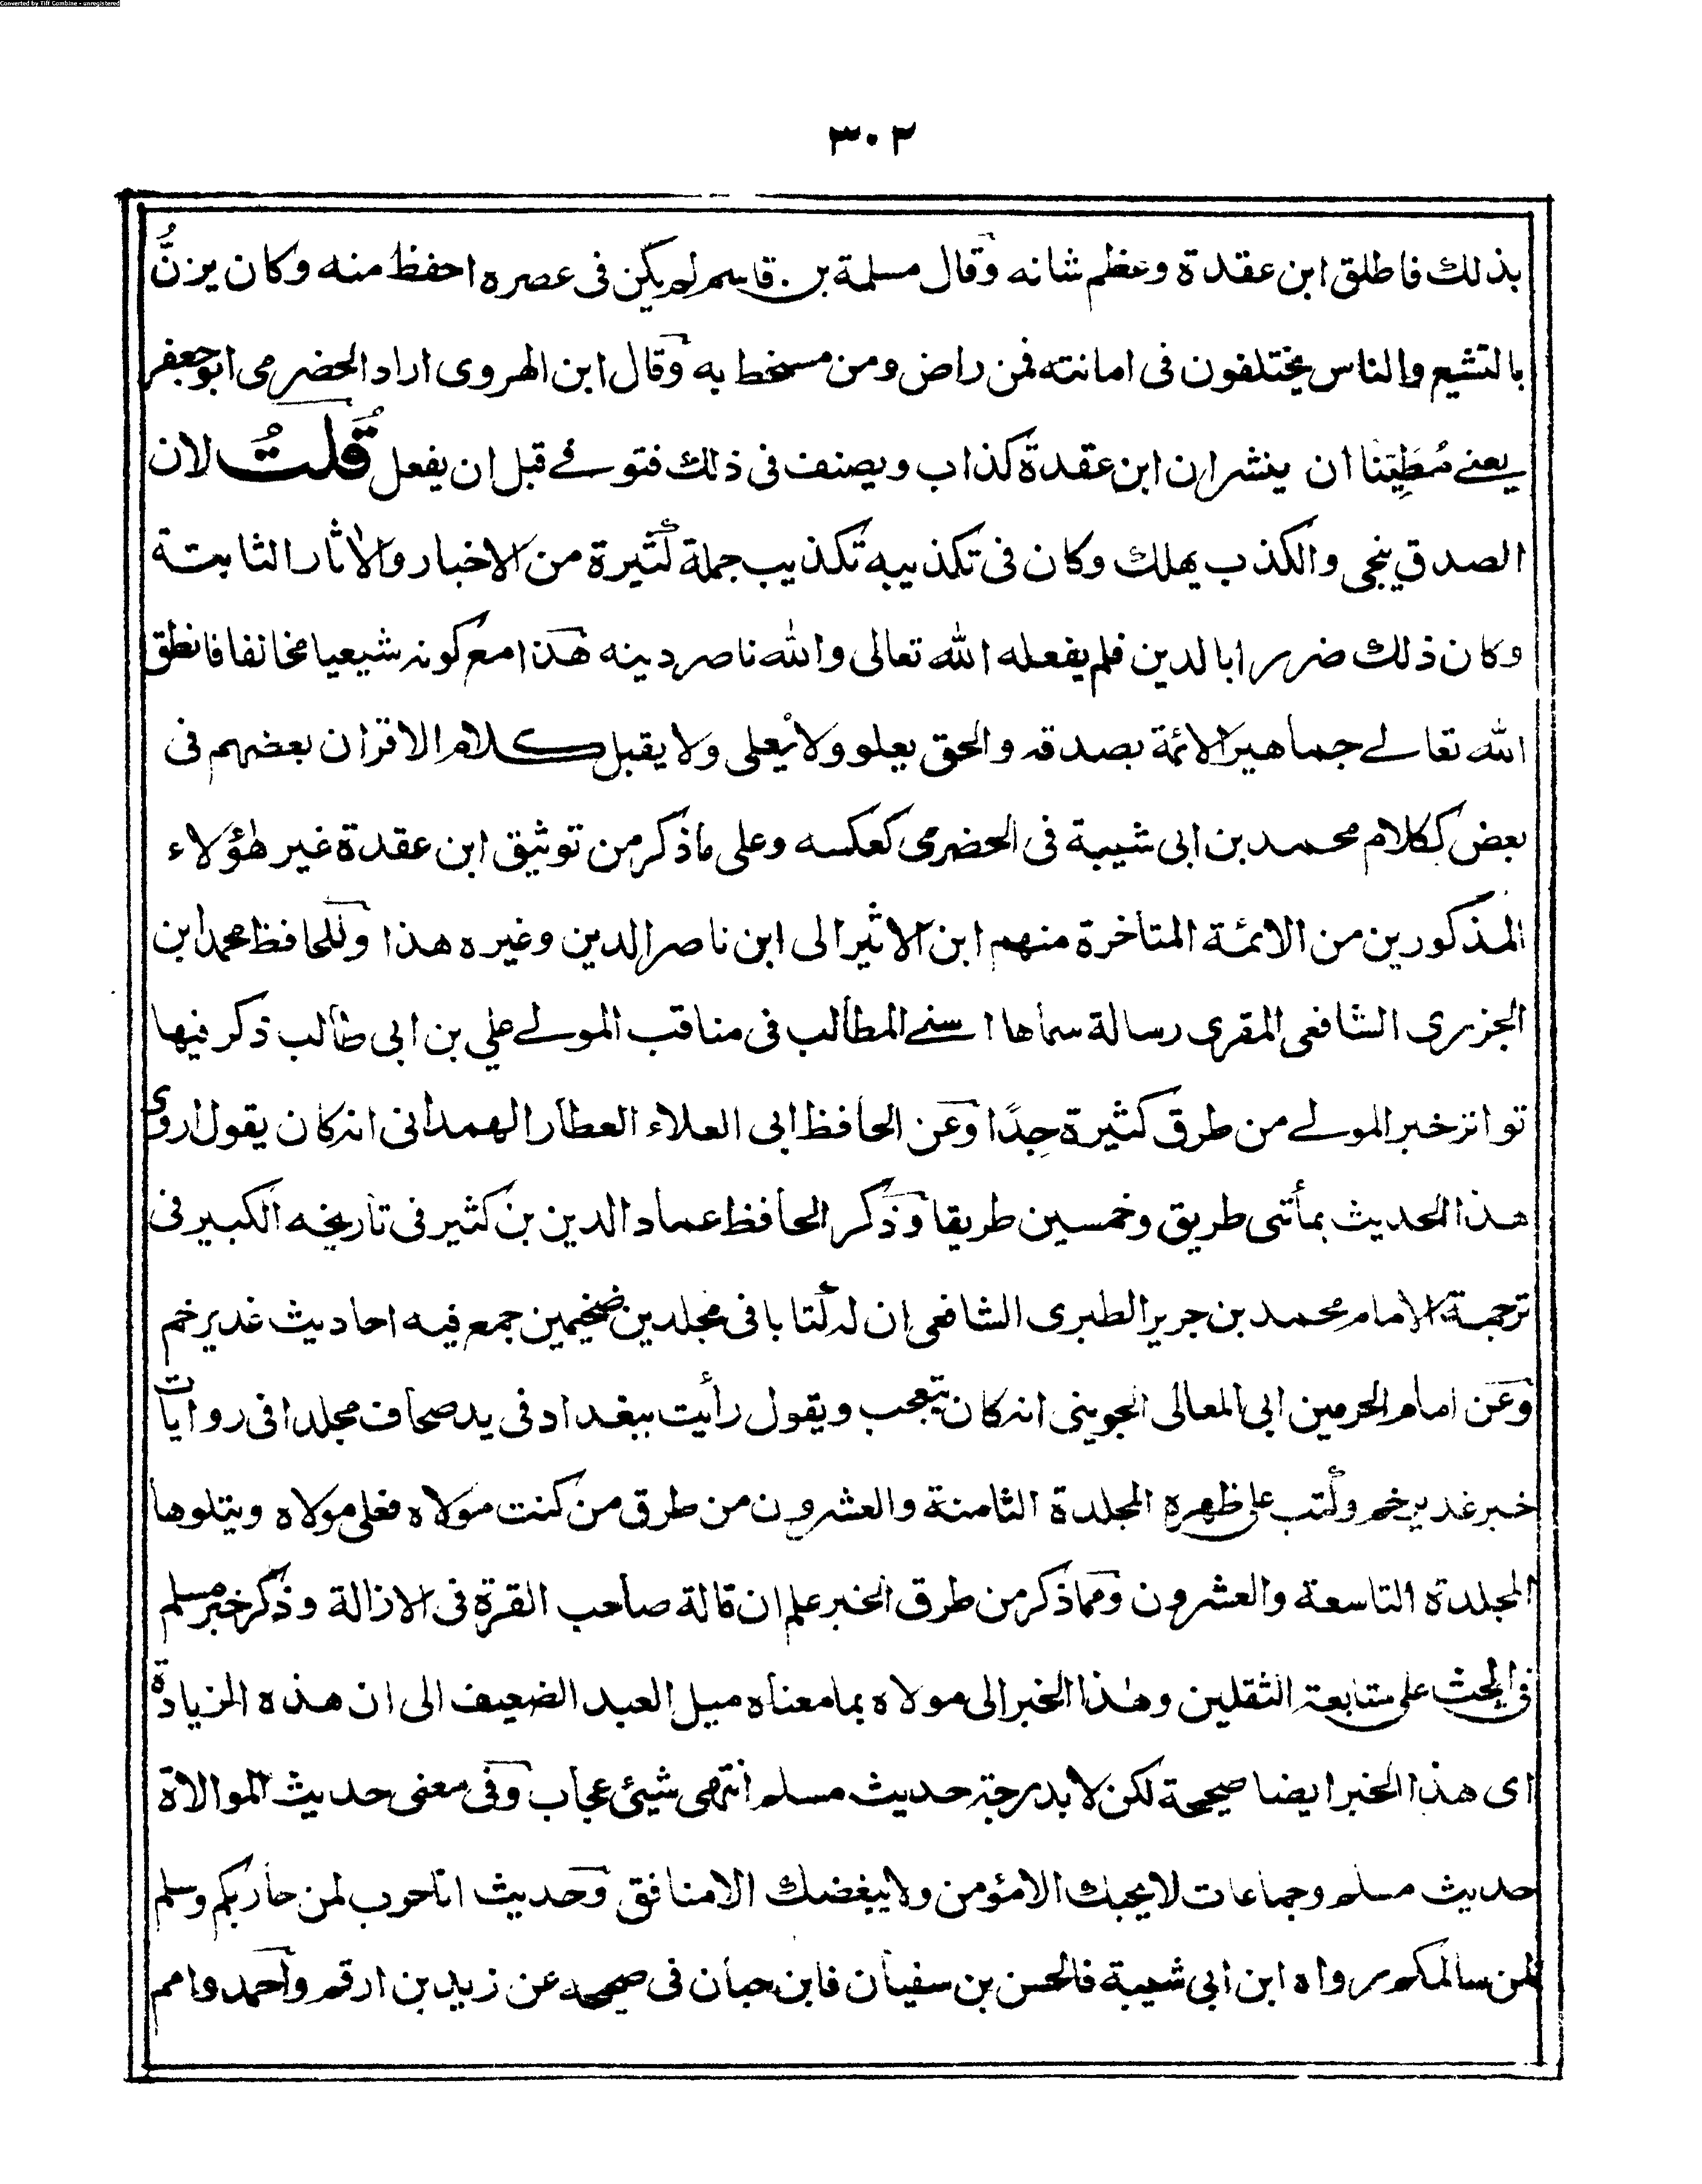 Converted by Tiff Combine - unregistered
٣٠٢
بذلك فاطلق ابن عقدة وعظم شانه وقال مسلمة بن قاسم لم يكن فى عصره احفظ منه وكان يزنُّ
بالتشيع والناس يختلفون فى امانته فمن راض ومن مسخط به وقال ابن الهروى اراد الحضرمى ابو جعفر
يعنے مُطَيِّنا ان ينشر ان ابن عقدة كذاب ويصنف فى ذلك فتوفے قبل ان يفعل قُلتُ لان
الصدق ينجى والكذب يهلك وكان فى تكذيبه تكذيب جملة كثيرة من الاخبار والاثار الثابتة
وكان ذلك ضررا بالدين فلم يفعله الله تعالى والله ناصر دينه هذا مع كونه شيعيا مخالفا فانطق
الله تعالے جماهير الائمة بصدقه والحق يعلو ولا يُعلى ولا يقبل كلام الاقران بعضهم فى
بعض ككلام محمد بن ابى شيبة فى الحضرمى كعكسه وعلى ماذكر من توثيق ابن عقدة غير هٰؤلاء
المذكورين من الائمة المتاخرة منهم ابن الاثير الى ابن ناصر الدين وغيره هذا وللحافظ محمد ابن
الجزرى الشافعى المقرى رسالة سماها اسنے المطالب فى مناقب المولے علي بن ابى طالب ذكر فيها
تواتر خبر المولے من طرق كثيرة جِدًا وعن الحافظ ابى العلاء العطار الهمدانى انه كان يقول اروى
هذا الحديث بمأتى طريق وخمسين طريقا وذكر الحافظ عماد الدين بن كثير فى تاريخه الكبير فى
ترجمة الامام محمد بن جرير الطبرى الشافعى ان له كتابا فى مجلدين ضخيمين جمع فيه احاديث غدير خم
وعن امام الحرمين ابى المعالى الجوينى انه كان يتعجب ويقول رأيت ببغداد فى يد صحاف مجلدا فى روايات
خبر غدير خم وكتب على ظهره المجلدة الثامنة والعشرون من طرق من كنت مولاه فعلى مولاه ويتلوها
المجلدة التاسعة والعشرون ومما ذكر من طرق الخبر علم ان قالة صاحب القرة فى الازالة وذكر خبر مسلم
فى الحث على متابعة الثقلين وهٰذا الخبر الى مولاه بما معناه ميل العبد الضعيف الى ان هذه الزيادة
اى هذا الخبر ايضا صحيحة لكن لا بدرجة حديث مسلم انتهى شيئ عجاب وفى معنى حديث الموالاة
حديث مسلم وجماعات لا يحبك الا مؤمن ولا يبغضك الا منافق وحديث انا حرب لمن حاربكم وسلم
لمن سالمكم رواه ابن ابى شيبة فالحسن بن سفيان فابن حبان فى صحيحه عن زيد بن ارقم واحمد وامم